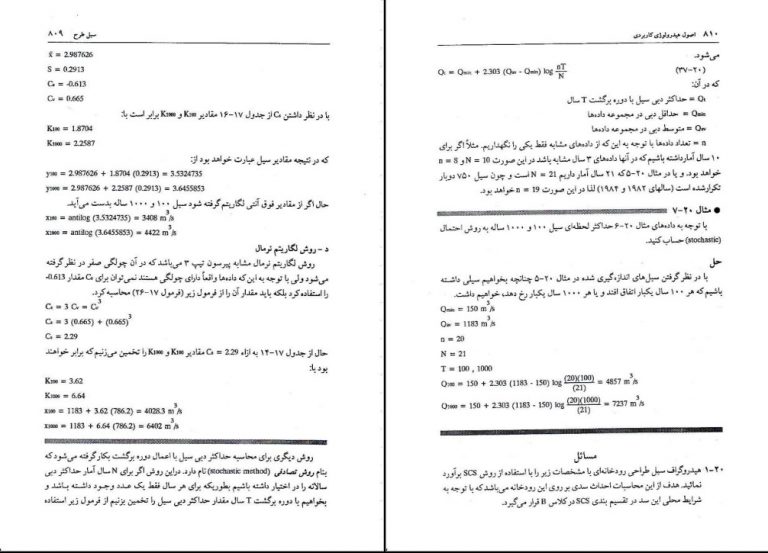 سیل طرح ۸۰۹
x̄ = 2.987626
S = 0.2913
Cs = -0.613
Cv = 0.665
با در نظر داشتن Cs از جدول ۱۷-۱۶ مقادیر K100 و K1000 برابر است با:
K100 = 1.8704
K1000 = 2.2587
که در نتیجه مقادیر سیل عبارت خواهد بود از:
y100 = 2.987626 + 1.8704 (0.2913) = 3.5324735
y1000 = 2.987626 + 2.2587 (0.2913) = 3.6455853
حال اگر از مقادیر فوق آنتی لگاریتم گرفته شود سیل ۱۰۰ و ۱۰۰۰ ساله بدست می‌آید.
x100 = antilog (3.5324735) = 3408 m³/s
x1000 = antilog (3.6455853) = 4422 m³/s
د - روش لگاریتم نرمال
روش لگاریتم نرمال مشابه پیرسون تیپ ۳ می‌باشد که در آن چولگی صفر در نظر گرفته
می‌شود ولی با توجه به این که داده‌ها واقعاً دارای چولگی هستند نمی‌توان برای Cs مقدار 0.613-
را استفاده کرد بلکه باید مقدار آن را از فرمول زیر (فرمول ۱۷-۲۶) محاسبه کرد.
Cs = 3 Cv = Cv³
Cs = 3 (0.665) + (0.665)³
Cs = 2.29
حال از جدول ۱۷-۱۴ به ازاء Cs = 2.29 مقادیر K100 و K1000 را تخمین می‌زنیم که برابر خواهند
بود با:
K100 = 3.62
K1000 = 6.64
x100 = 1183 + 3.62 (786.2) = 4028.3 m³/s
x1000 = 1183 + 6.64 (786.2) = 6402 m³/s
روش دیگری برای محاسبه حداکثر دبی سیل با اعمال دوره برگشت بکار گرفته می‌شود که
بنام روش تصادفی (stochastic method) نام دارد. در این روش اگر برای N سال آمار حداکثر دبی
سالانه را در اختیار داشته باشیم بطوریکه برای هر سال فقط یک عدد وجود داشته باشد و
بخواهیم با دوره برگشت T سال مقدار حداکثر دبی سیل را تخمین بزنیم از فرمول زیر استفاده
۸۱۰ اصول هیدرولوژی کاربردی
می‌شود.
Qt = Qmin + 2.303 (Qav - Qmin) log nT/N (۲۰-۳۷)
که در آن:
Qt = حداکثر دبی سیل با دوره برگشت T سال
Qmin = حداقل دبی در مجموعه داده‌ها
Qav = متوسط دبی در مجموعه داده‌ها
n = تعداد داده‌ها با توجه به این که از داده‌های مشابه فقط یکی را نگهداریم. مثلاً اگر برای
۱۰ سال آمار داشته باشیم که در آنها داده‌های ۳ سال مشابه باشد در این صورت N = 10 و n = 8
خواهد بود. و یا در مثال ۲۰-۵ که ۲۱ سال آمار داریم N = 21 است و چون سیل ۷۵۰ دوبار
تکرار شده است (سالهای ۱۹۸۲ و ۱۹۸۴) لذا در این صورت n = 19 خواهد بود.
● مثال ۲۰-۷
با توجه به داده‌های مثال ۲۰-۶ حداکثر لحظه‌ای سیل ۱۰۰ و ۱۰۰۰ ساله به روش احتمال
(stochastic) حساب کنید.
حل
با در نظر گرفتن سیل‌های اندازه‌گیری شده در مثال ۲۰-۵ چنانچه بخواهیم سیلی داشته
باشیم که هر ۱۰۰ سال یکبار اتفاق افتد و یا هر ۱۰۰۰ سال یکبار رخ دهد، خواهیم داشت.
Qmin = 150 m³/s
Qav = 1183 m³/s
n = 20
N = 21
T = 100 , 1000
Q100 = 150 + 2.303 (1183 - 150) log (20)(100)/(21) = 4857 m³/s
Q1000 = 150 + 2.303 (1183 - 150) log (20)(1000)/(21) = 7237 m³/s
مسائل
۲۰-۱ هیدروگراف سیل طراحی رودخانه‌ای با مشخصات زیر را با استفاده از روش SCS برآورد
نمائید. هدف از این محاسبات احداث سدی بر روی این رودخانه می‌باشد که با توجه به
شرایط محلی این سد در تقسیم بندی SCS در کلاس B قرار می‌گیرد.